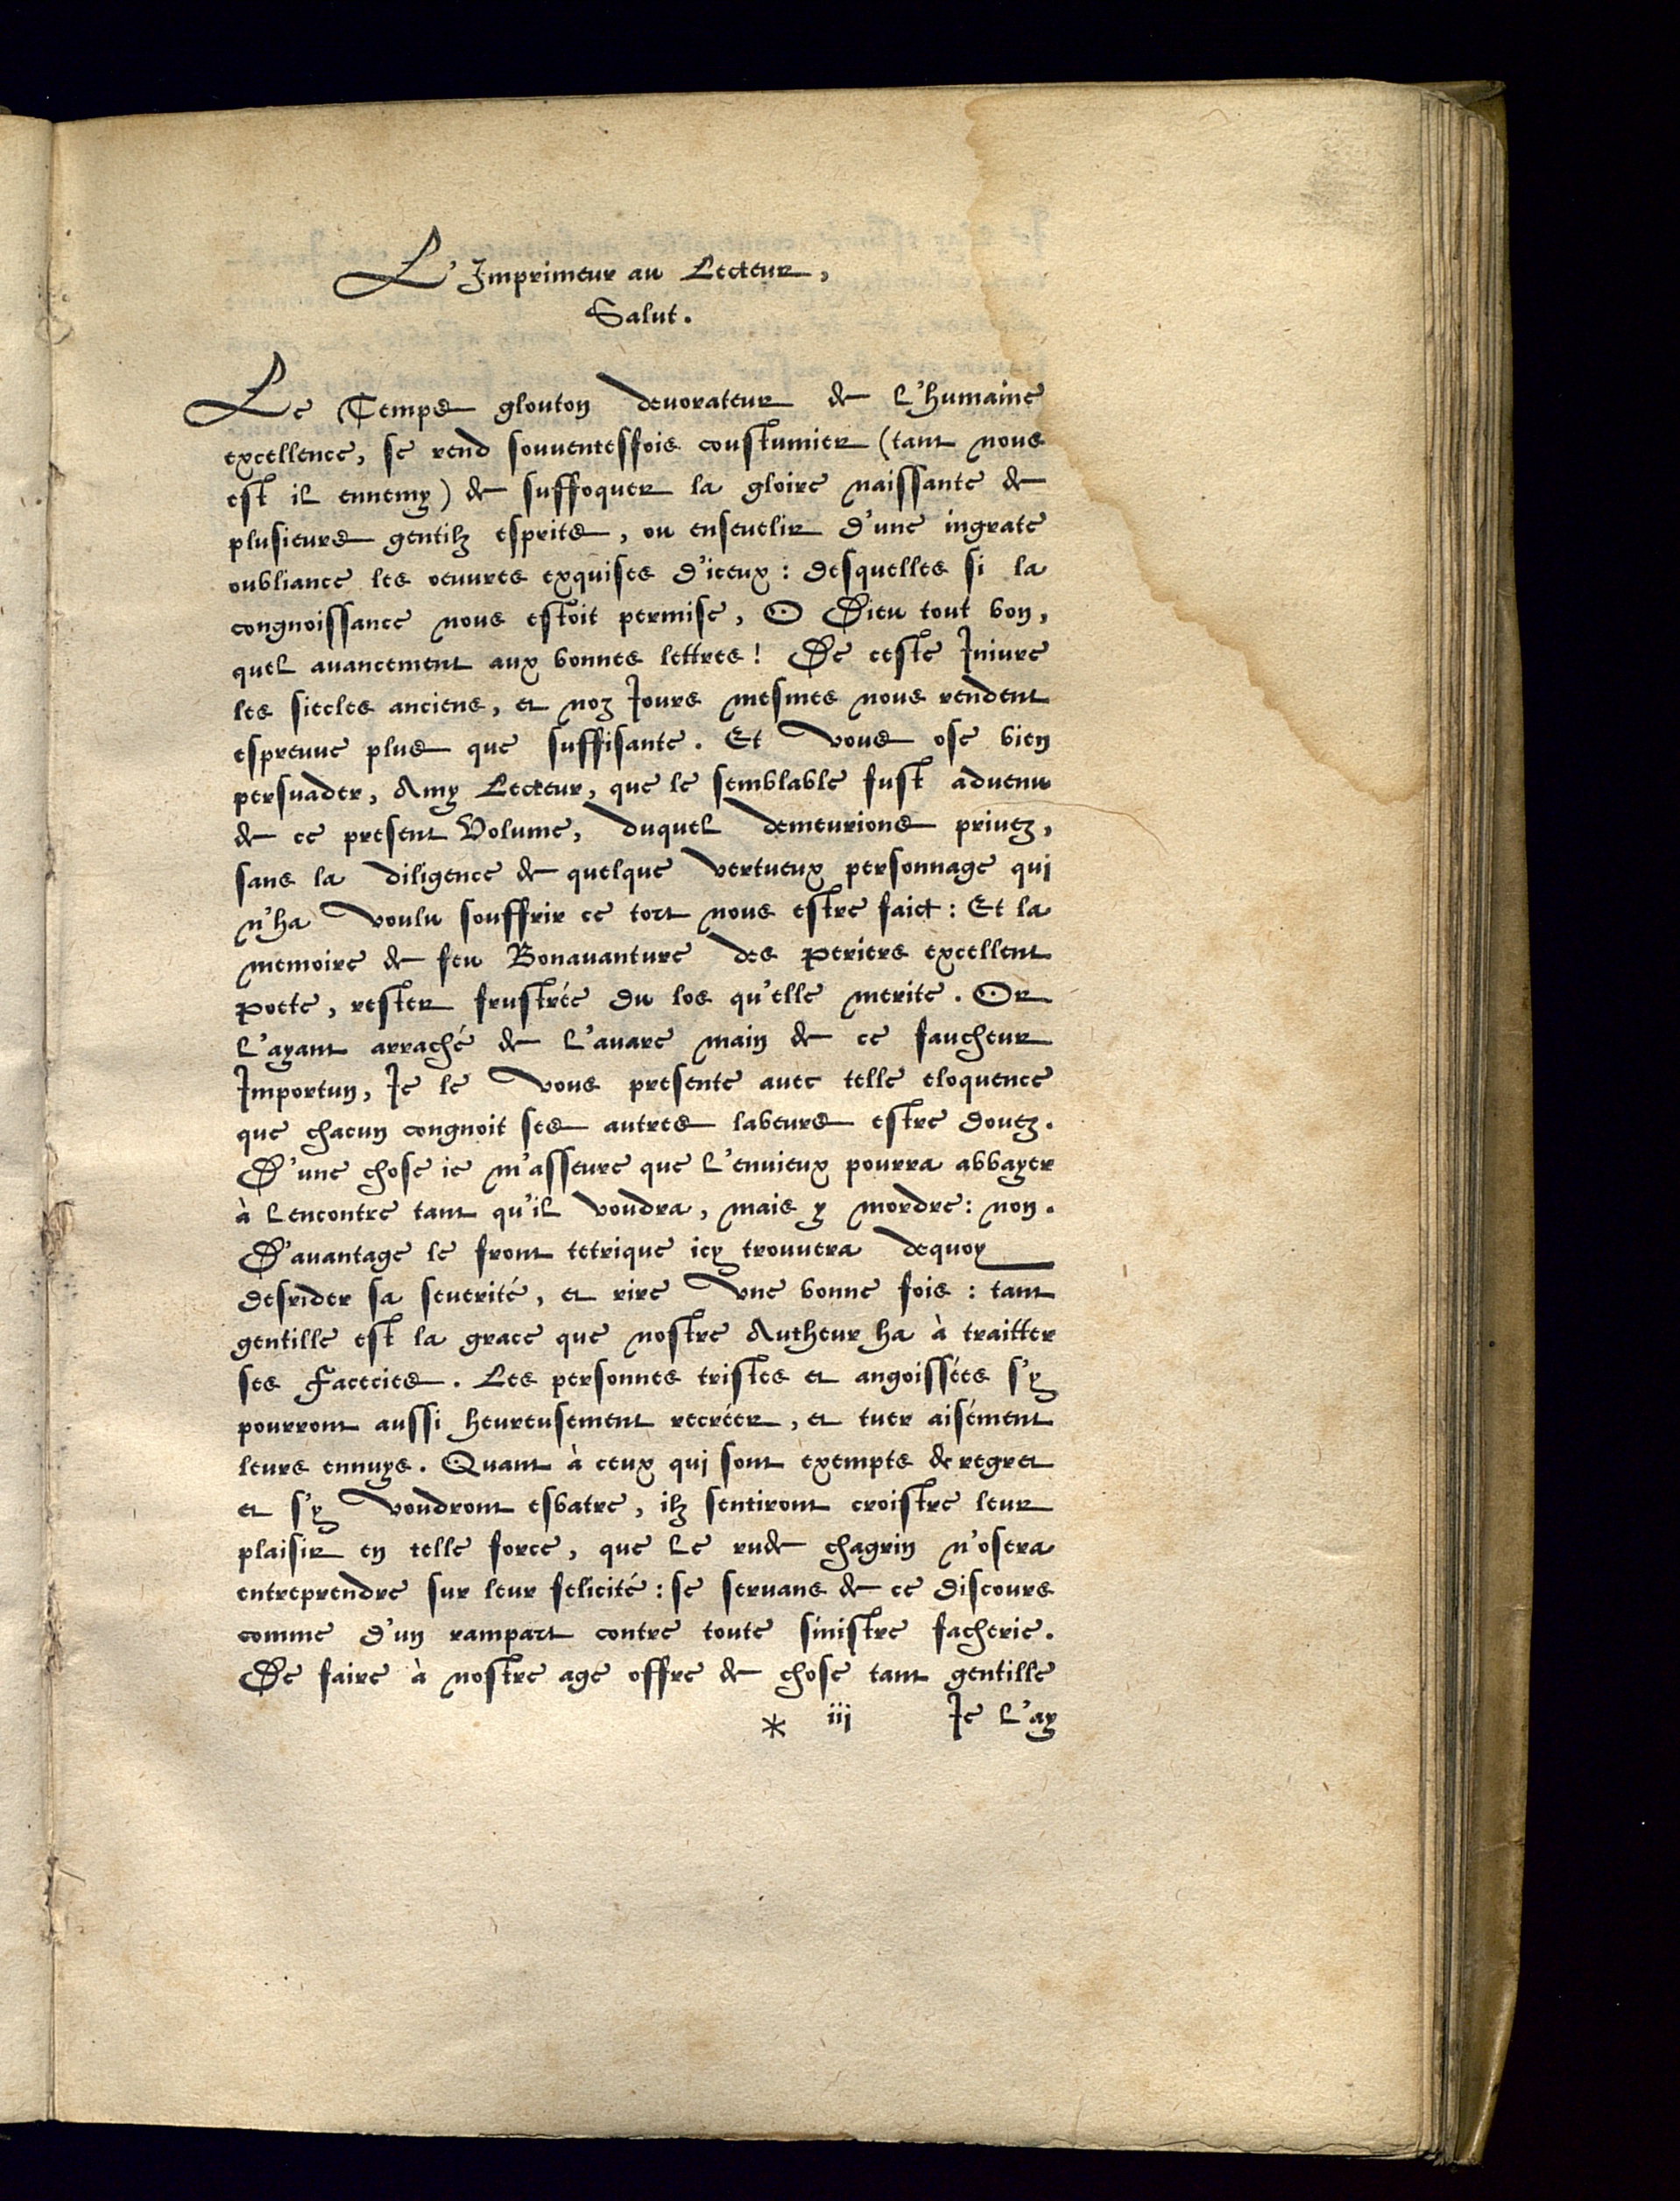 L'Imprimeur au Lecteur,
Salut.
Le Temps glouton deuorateur de l'humaine
excellence, se rend souuentesfois coustumier (tant nous
est il ennemy) de suffoquer la gloire naissante de
plusieurs gentilz esprits, ou enseuelir d'une ingrate
oubliance les oeuures exquises d'iceux: desquelles si la
congnoissance nous estoit permise, O Dieu tout bon,
quel auancement aux bonnes lettres! De ceste Iniure
les siecles anciens, et noz Iours mesmes nous rendent
espreuue plus que suffisante. Et vous ose bien
persuader, Amy Lecteur, que le semblable fust aduenu
de ce present Volume, duquel demeurions priuez,
sans la diligence de quelque vertueux personnage qui
n'ha voulu souffrir ce tort nous estre faict: Et la
memoire de feu Bonauanture des Periers excellent
Poete, rester frustrée du los qu'elle merite. Or
l'ayant arraché de l'auare main de ce faucheur
Importun, Ie le vous presente auec telle eloquence
que chacun congnoit ses autres labeurs estre douez.
D'une chose ie m'asseure que l'enuieux pourra abbayer
à lencontre tant qu'il voudra, mais y mordre: non.
D'auantage le front tetrique icy trouuera dequoy
desrider sa seuerité, et rire vne bonne fois: tant
gentille est la grace que nostre Autheur ha à traitter
ses Facecies. Les personnes tristes et angoissées s'y
pourront aussi heureusement recréer, et tuer aisément
leurs ennuys. Quant à ceux qui sont exempts de regret
et s'y voudront esbatre, ilz sentiront croistre leur
plaisir en telle force, que le rude chagrin n'osera
entreprendre sur leur felicité: se seruans de ce discours
comme d'un rampart contre toute sinistre facherie.
De faire à nostre age offre de chose tant gentille
* iij Ie l'ay